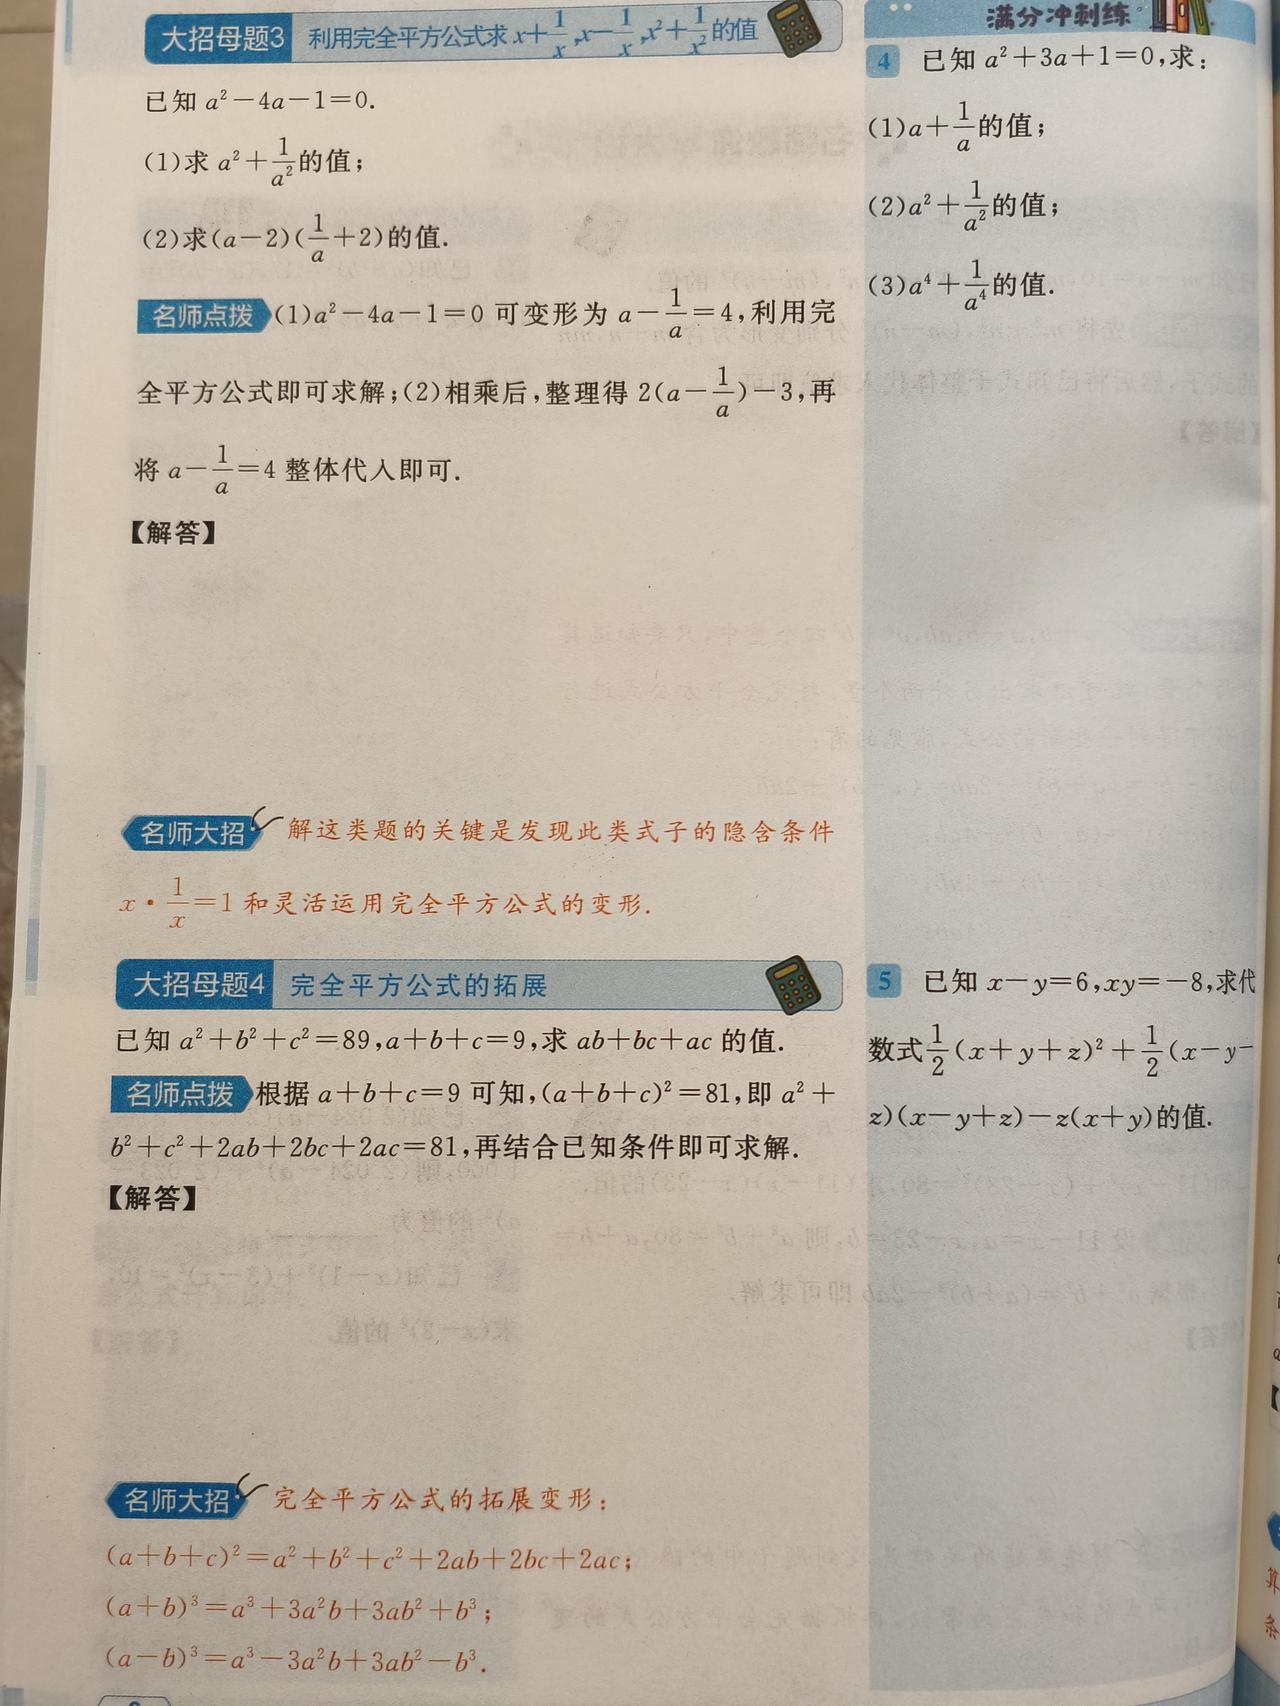 大招母题3 利用完全平方公式求x+1/x,x-1/x,x²+1/x²的值
已知 a²-4a-1=0.
(1)求 a²+1/a²的值;
(2)求(a-2)(1/a+2)的值.
名师点拨 (1)a²-4a-1=0 可变形为 a-1/a=4,利用完
全平方公式即可求解;(2)相乘后,整理得 2(a-1/a)-3,再
将 a-1/a=4 整体代入即可.
【解答】
名师大招 解这类题的关键是发现此类式子的隐含条件
x·1/x=1 和灵活运用完全平方公式的变形.
大招母题4 完全平方公式的拓展
已知 a²+b²+c²=89,a+b+c=9,求 ab+bc+ac 的值.
名师点拨 根据 a+b+c=9 可知,(a+b+c)²=81,即 a²+
b²+c²+2ab+2bc+2ac=81,再结合已知条件即可求解.
【解答】
名师大招 完全平方公式的拓展变形:
(a+b+c)²=a²+b²+c²+2ab+2bc+2ac;
(a+b)³=a³+3a²b+3ab²+b³;
(a-b)³=a³-3a²b+3ab²-b³.
满分冲刺练
4 已知 a²+3a+1=0,求:
(1)a+1/a的值;
(2)a²+1/a²的值;
(3)a⁴+1/a⁴的值.
5 已知 x-y=6,xy=-8,求代
数式1/2(x+y+z)²+1/2(x-y-
z)(x-y+z)-z(x+y)的值.